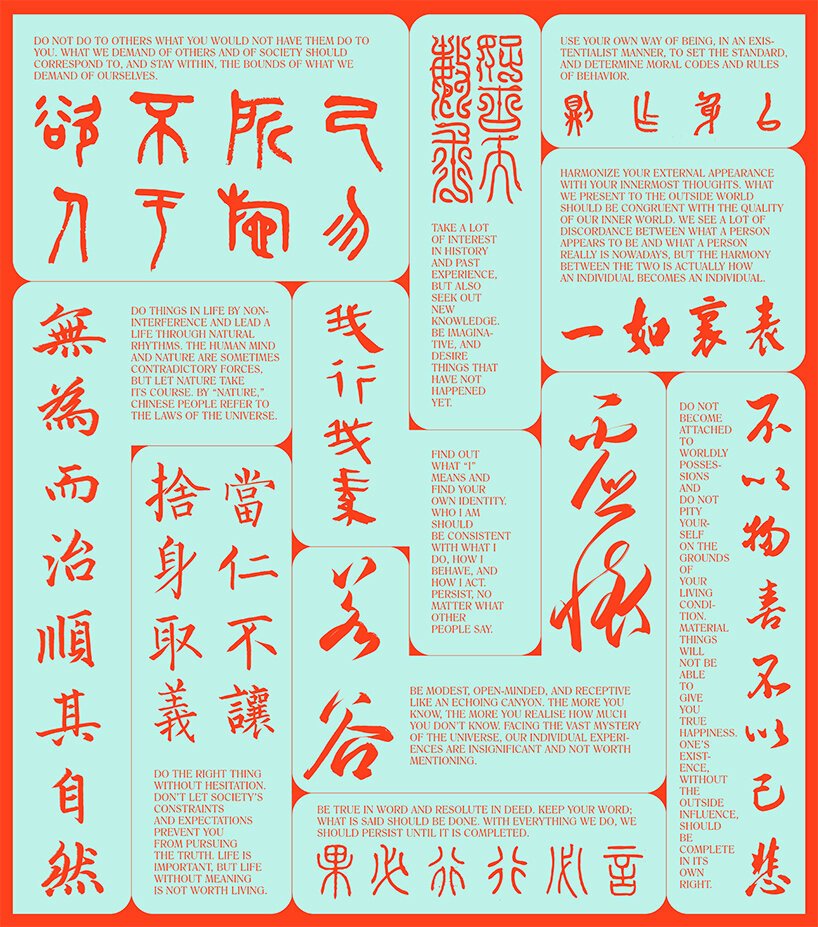 DO NOT DO TO OTHERS WHAT YOU WOULD NOT HAVE THEM DO TO
YOU. WHAT WE DEMAND OF OTHERS AND OF SOCIETY SHOULD
CORRESPOND TO, AND STAY WITHIN, THE BOUNDS OF WHAT WE
DEMAND OF OURSELVES.
己所不欲
勿施于人
TAKE A LOT
OF INTEREST
IN HISTORY
AND PAST
EXPERIENCE,
BUT ALSO
SEEK OUT
NEW
KNOWLEDGE.
BE IMAGINA-
TIVE, AND
DESIRE
THINGS THAT
HAVE NOT
HAPPENED
YET.
USE YOUR OWN WAY OF BEING, IN AN EXIS-
TENTIALIST MANNER, TO SET THE STANDARD,
AND DETERMINE MORAL CODES AND RULES
OF BEHAVIOR.
以身作則
HARMONIZE YOUR EXTERNAL APPEARANCE
WITH YOUR INNERMOST THOUGHTS. WHAT
WE PRESENT TO THE OUTSIDE WORLD
SHOULD BE CONGRUENT WITH THE QUALITY
OF OUR INNER WORLD. WE SEE A LOT OF
DISCORDANCE BETWEEN WHAT A PERSON
APPEARS TO BE AND WHAT A PERSON
REALLY IS NOWADAYS, BUT THE HARMONY
BETWEEN THE TWO IS ACTUALLY HOW
AN INDIVIDUAL BECOMES AN INDIVIDUAL.
表裏如一
無為而治順其自然
DO THINGS IN LIFE BY NON-
INTERFERENCE AND LEAD A
LIFE THROUGH NATURAL
RHYTHMS. THE HUMAN MIND
AND NATURE ARE SOMETIMES
CONTRADICTORY FORCES,
BUT LET NATURE TAKE
ITS COURSE. BY “NATURE,”
CHINESE PEOPLE REFER TO
THE LAWS OF THE UNIVERSE.
當仁不讓
捨身取義
DO THE RIGHT THING
WITHOUT HESITATION.
DON’T LET SOCIETY’S
CONSTRAINTS
AND EXPECTATIONS
PREVENT YOU
FROM PURSUING
THE TRUTH. LIFE IS
IMPORTANT, BUT LIFE
WITHOUT MEANING
IS NOT WORTH LIVING.
我行我素
FIND OUT
WHAT “I”
MEANS AND
FIND YOUR
OWN IDENTITY.
WHO I AM
SHOULD
BE CONSISTENT
WITH WHAT I
DO, HOW I
BEHAVE, AND
HOW I ACT.
PERSIST, NO
MATTER WHAT
OTHER
PEOPLE SAY.
虛懷
若谷
BE MODEST, OPEN-MINDED, AND RECEPTIVE
LIKE AN ECHOING CANYON. THE MORE YOU
KNOW, THE MORE YOU REALISE HOW MUCH
YOU DON’T KNOW. FACING THE VAST MYSTERY
OF THE UNIVERSE, OUR INDIVIDUAL EXPERI-
ENCES ARE INSIGNIFICANT AND NOT WORTH
MENTIONING.
不以物喜不以己悲
DO NOT
BECOME
ATTACHED
TO
WORLDLY
POSSES-
SIONS
AND
DO NOT
PITY
YOUR-
SELF
ON THE
GROUNDS
OF
YOUR
LIVING
CONDI-
TION.
MATERIAL
THINGS
WILL
NOT BE
ABLE
TO
GIVE
YOU
TRUE
HAPPINESS.
ONE’S
EXIST-
ENCE,
WITHOUT
THE
OUTSIDE
INFLUENCE,
SHOULD
BE
COMPLETE
IN ITS
OWN
RIGHT.
BE TRUE IN WORD AND RESOLUTE IN DEED. KEEP YOUR WORD;
WHAT IS SAID SHOULD BE DONE. WITH EVERYTHING WE DO, WE
SHOULD PERSIST UNTIL IT IS COMPLETED.
言必行行必果